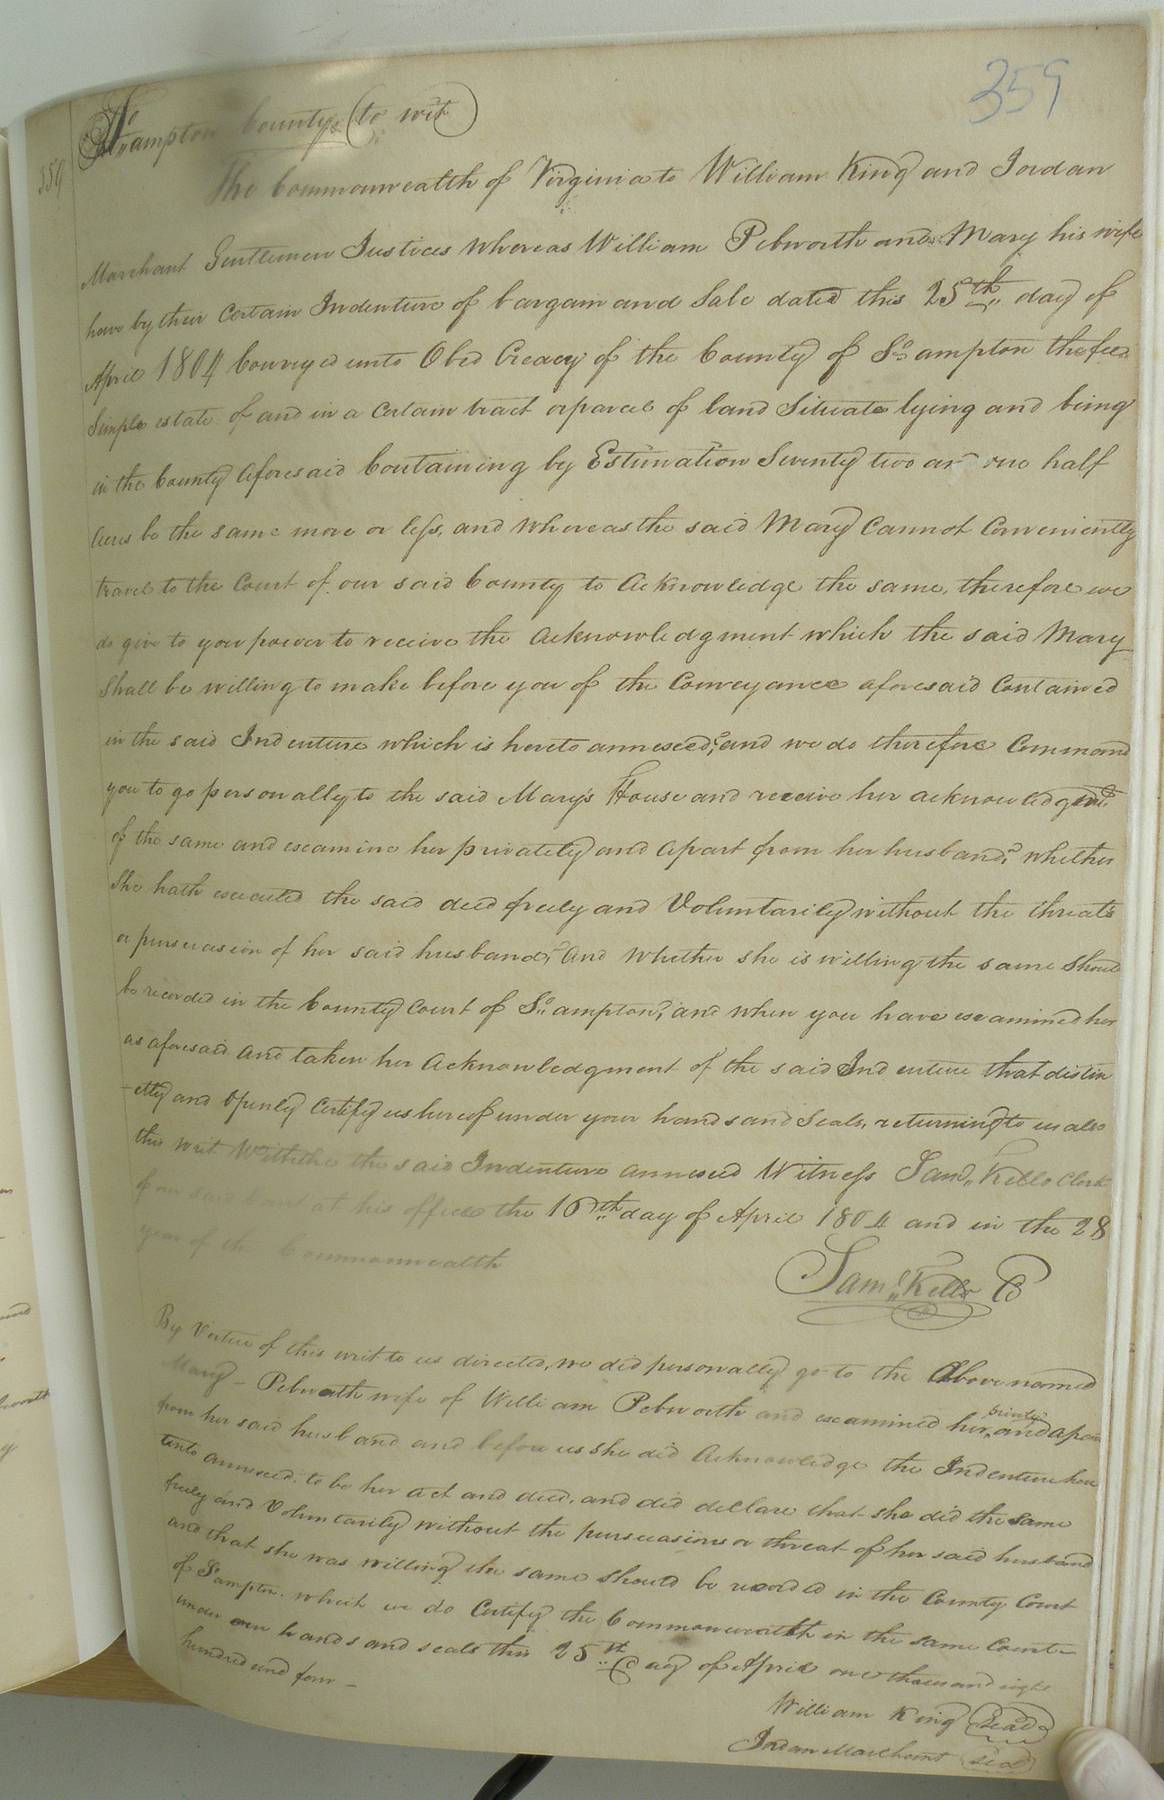 359
359
So
Hampton County (to wit)
The Commonwealth of Virginia to William King and Jordan
Marchant Gentlemen Justices Whereas William Pebworth and Mary his wife
have by their certain Indenture of bargain and Sale dated this 25th day of
April 1804 Conveyed unto Obed Creacy of the County of So.ampton the fee
Simple estate of and in a certain tract or parcel of land Situate lying and being
in the County aforesaid Containing by Estimation Seventy two an one half
Acres be the same more or less, and whereas the said Mary Cannot Conveniently
travel to the Court of our said County to Acknowledge the same, therefore we
do give to you power to receive the Acknowledgment which the said Mary
Shall be willing to make before you of the Conveyance aforesaid Contained
in the said Indenture which is hereto annexed, and we do therefore Command
you to go personally to the said Mary's House and receive her acknowledgmt.
of the same and examine her privately and apart from her husband, whether
She hath executed the said deed freely and Voluntarily without the threats
or pursuasion of her said husband, and whether she is willing the same Should
be recorded in the County Court of So.ampton, and when you have examined her
as aforesaid and taken her Acknowledgment of the said Indenture that distin
-ctly and Openly Certify us hereof under your hands and Seals, returning to us also
this writ the said Indenture annexed Witness Saml. Kello Clerk
of our said Court at his office the 16th day of April 1804 and in the 28
year of the Commonwealth
Saml. Kello C
By Vertue of this writ to us directed, we did personally go to the Above named
Mary - Pebworth wife of William Pebworth and examined her, privily and apart
from her said husband and before us she did Acknowledge the Indenture here
unto annexed, to be her act and deed, and did declare that she did the same
freely and Voluntarily without the pursuasions or threat of her said husband
and that she was willing the same should be recorded in the County Court
of So.ampton. which we do Certify the Commonwealth in the same Court
under our hands and seals this 25th day of April one thousand eight
hundred and four -
William King (Seal)
Jordan Marchant (Seal)